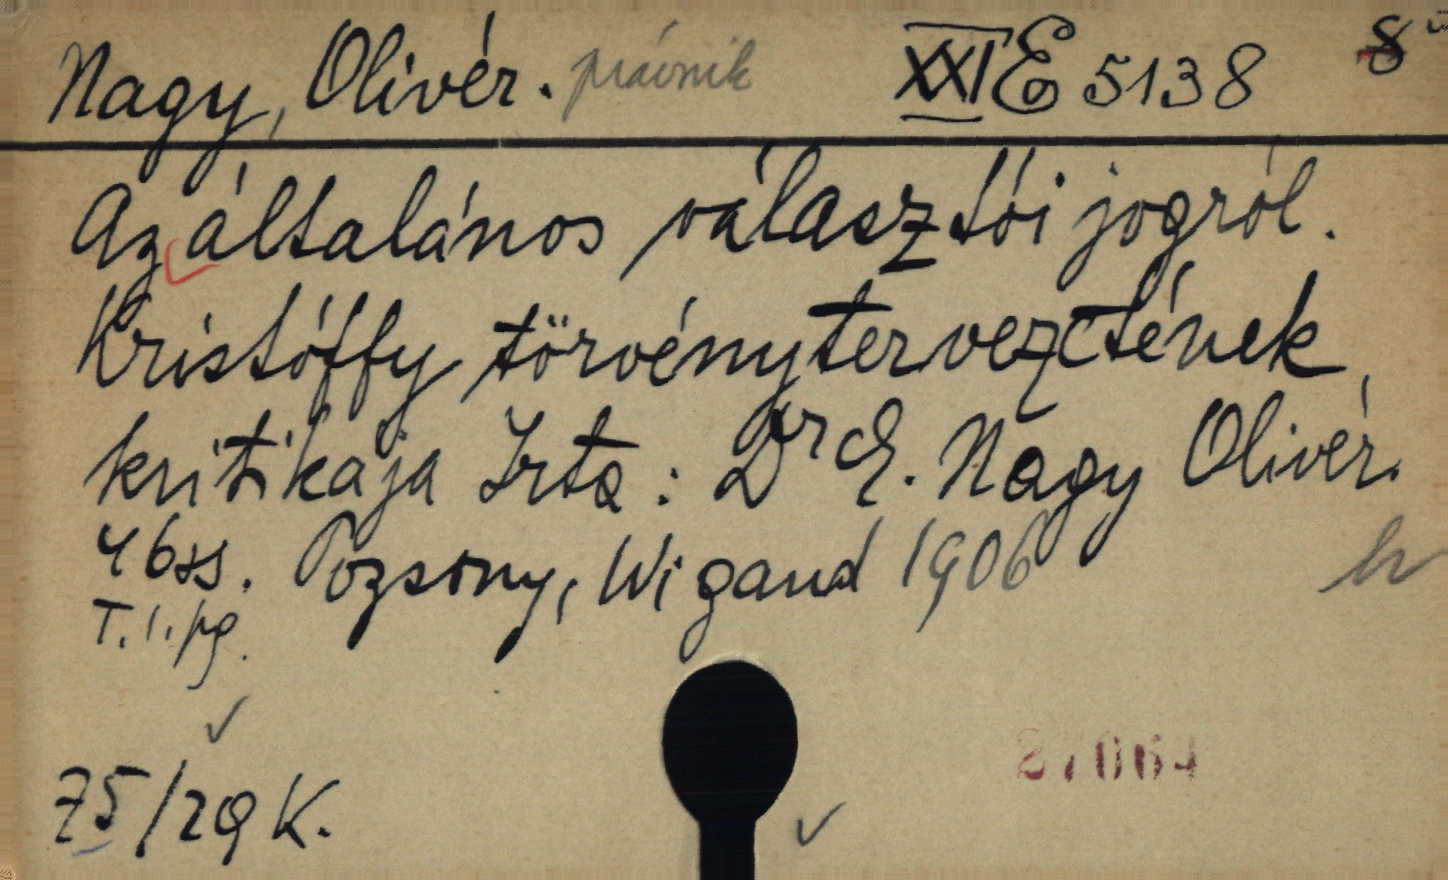 Nagy, Olivér. právnik XXI E 5138 8
Az általános választói jogról.
Kristóffy törvénytervezetének
kritikája Irta: Dr E. Nagy Olivér.
46 ss. Pozsony, Wigand 1906
T. l. pg.
75/29 K.
27064